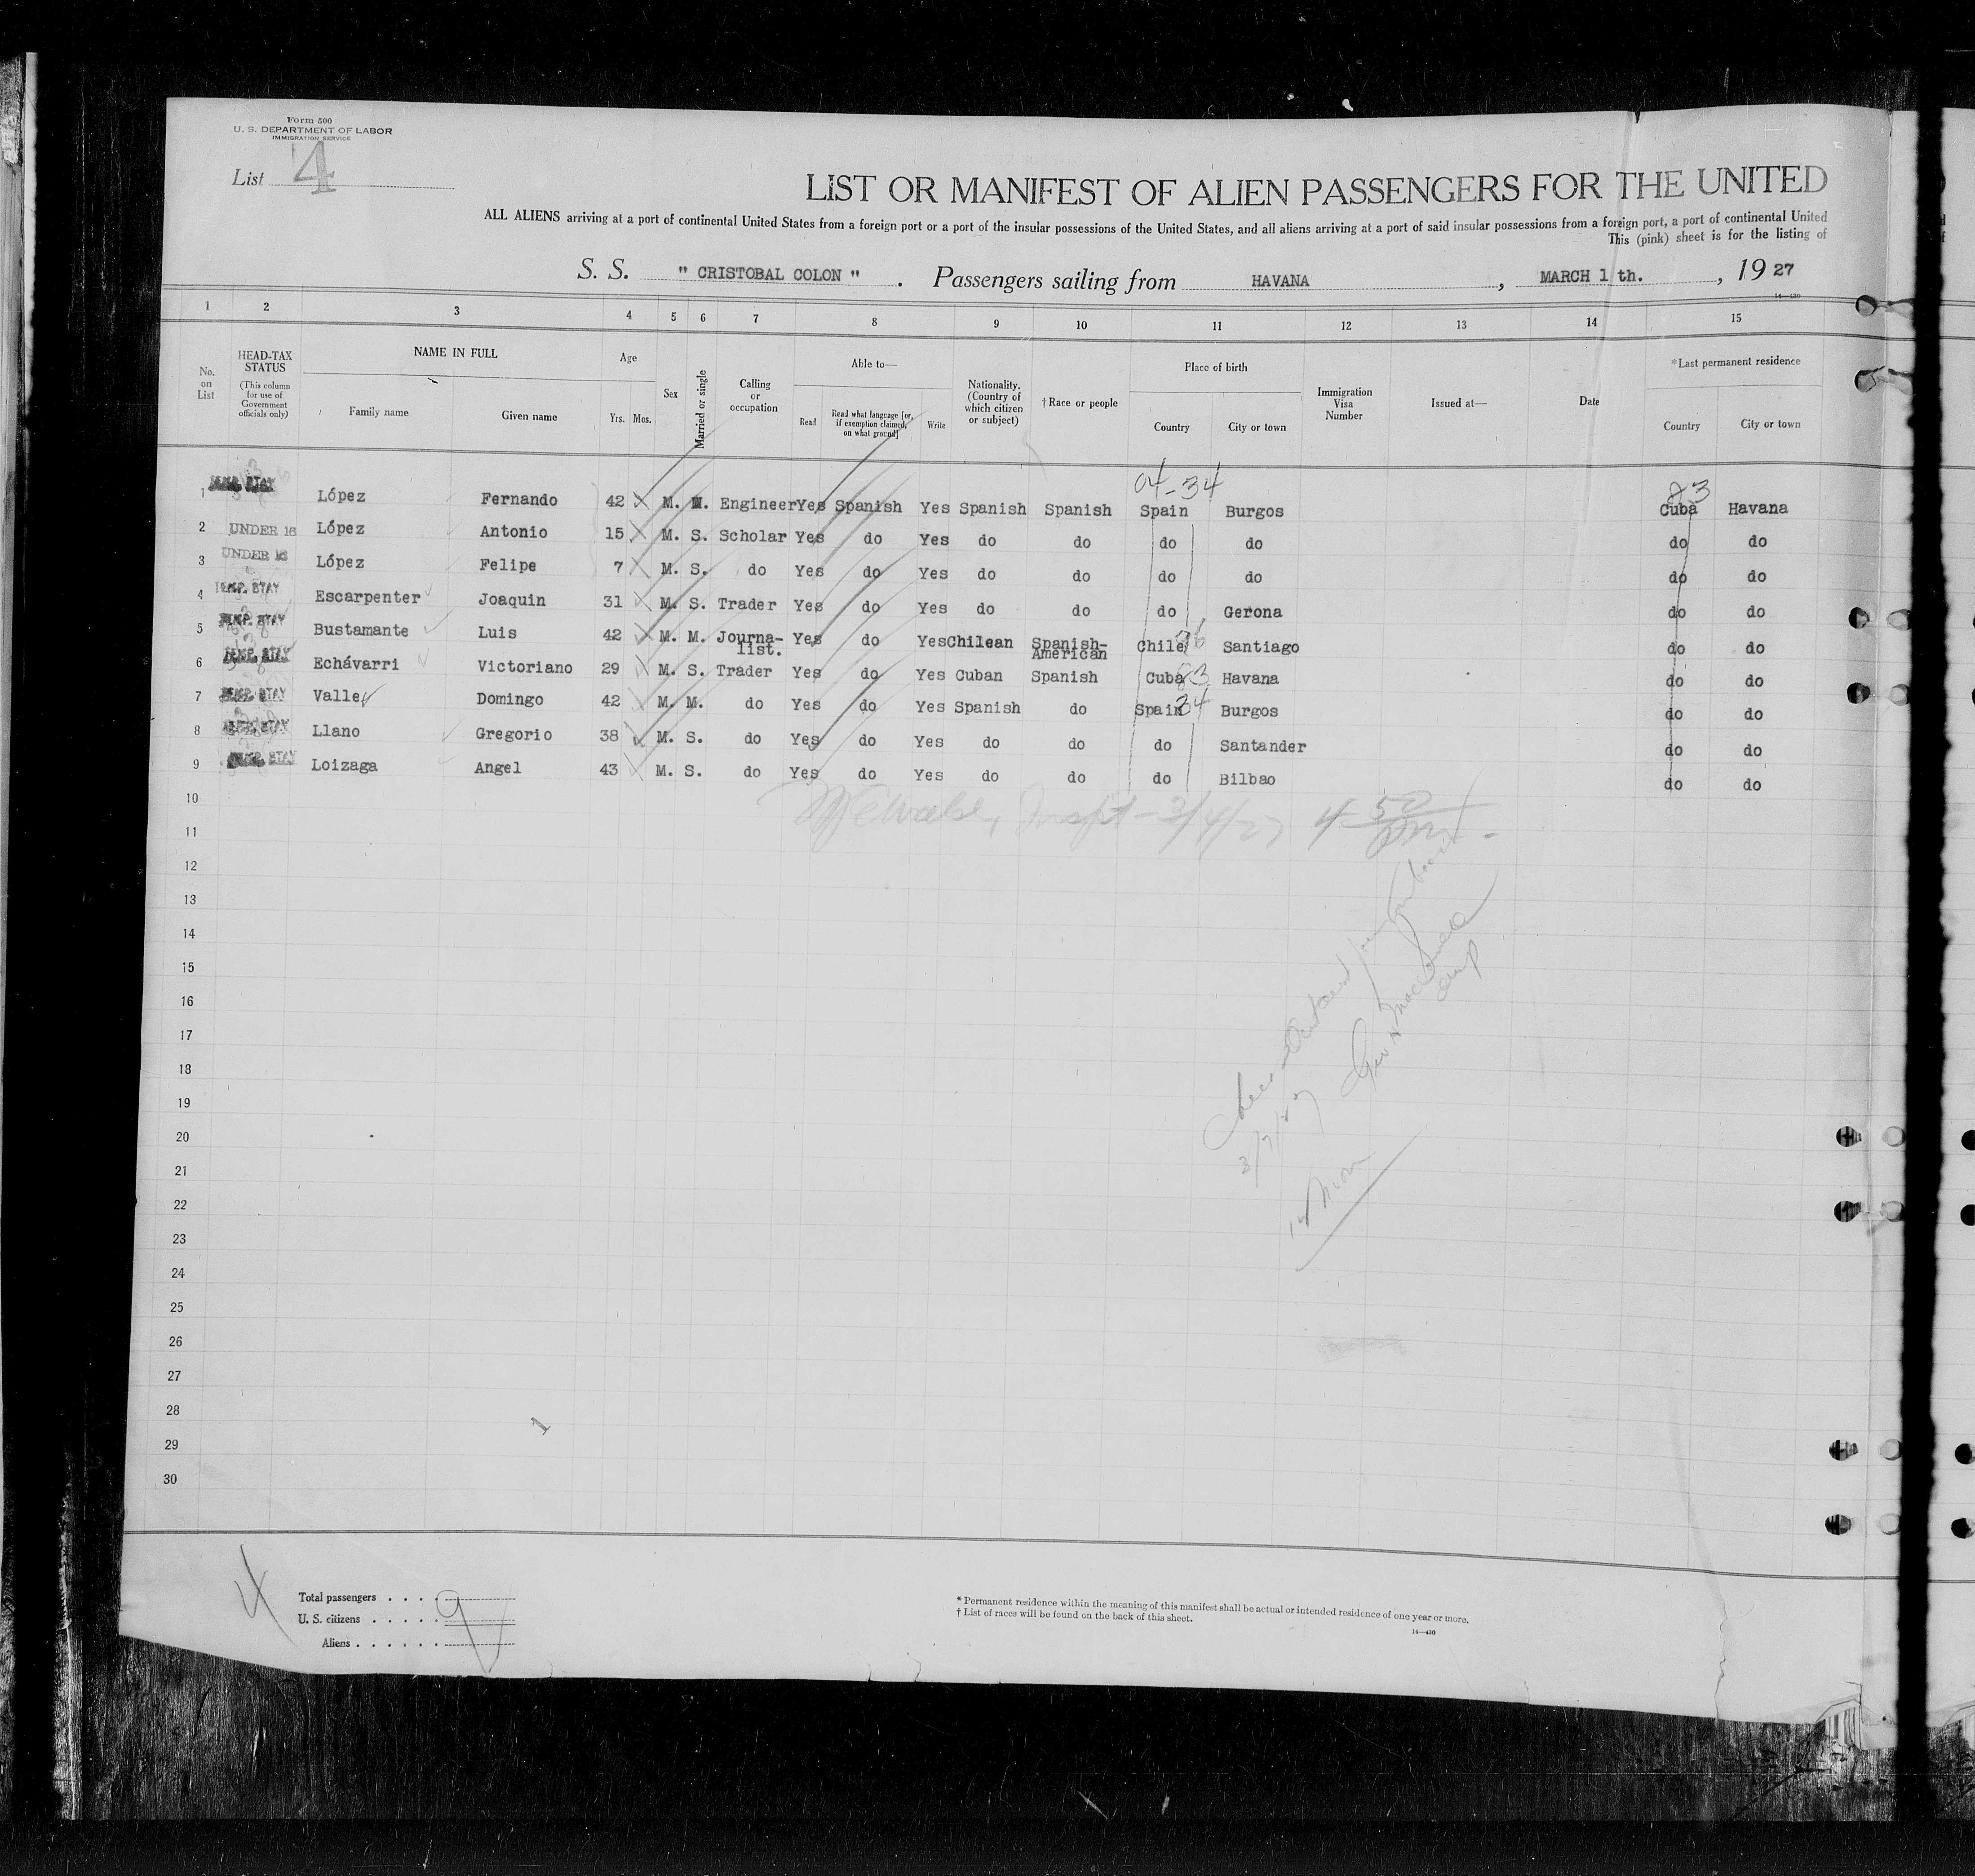 Form 500
U. S. DEPARTMENT OF LABOR
IMMIGRATION SERVICE
List 4
LIST OR MANIFEST OF ALIEN PASSENGERS FOR THE UNITED
ALL ALIENS arriving at a port of continental United States from a foreign port or a port of the insular possessions of the United States, and all aliens arriving at a port of said insular possessions from a foreign port, a port of continental United
This (pink) sheet is for the listing of
S. S. " CRISTOBAL COLON " . Passengers sailing from HAVANA , MARCH 1 th. , 19 27
14—430
1 2 3 4 5 6 7 8 9 10 11 12 13 14 15
No. on List
HEAD-TAX STATUS
(This column for use of Government officials only)
NAME IN FULL
Family name Given name
Age
Yrs. Mos.
Sex
Married or single
Calling or occupation
Able to—
Read
Read what language [or, if exemption claimed, on what ground]
Write
Nationality. (Country of which citizen or subject)
†Race or people
Place of birth
Country City or town
Immigration Visa Number
Issued at—
Date
*Last permanent residence
Country City or town
04-34 83
1 TEMP. STAY López Fernando 42 M. M. Engineer Yes Spanish Yes Spanish Spanish Spain Burgos Cuba Havana
2 UNDER 16 López Antonio 15 M. S. Scholar Yes do Yes do do do do do do
3 UNDER 16 López Felipe 7 M. S. do Yes do Yes do do do do do do
4 TEMP. STAY Escarpenter Joaquin 31 M. S. Trader Yes do Yes do do do Gerona do do
5 TEMP. STAY Bustamante Luis 42 M. M. Journa-list. Yes do Yes Chilean Spanish-American Chile Santiago do do
6 TEMP. STAY Echávarri Victoriano 29 M. S. Trader Yes do Yes Cuban Spanish Cuba 83 Havana do do
7 TEMP. STAY Valle Domingo 42 M. M. do Yes do Yes Spanish do Spain 34 Burgos do do
8 TEMP. STAY Llano Gregorio 38 M. S. do Yes do Yes do do do Santander do do
9 TEMP. STAY Loizaga Angel 43 M. S. do Yes do Yes do do do Bilbao do do
10
Inspt - 3/4/27 4 50 pm -
11
12
13
14
15
16
17
18
19
20
21
22
23
24
25
26
27
28
29
30
3/7/27
1
Total passengers . . . . 9
U. S. citizens . . . . .
Aliens . . . . . .
* Permanent residence within the meaning of this manifest shall be actual or intended residence of one year or more.
† List of races will be found on the back of this sheet.
14—430